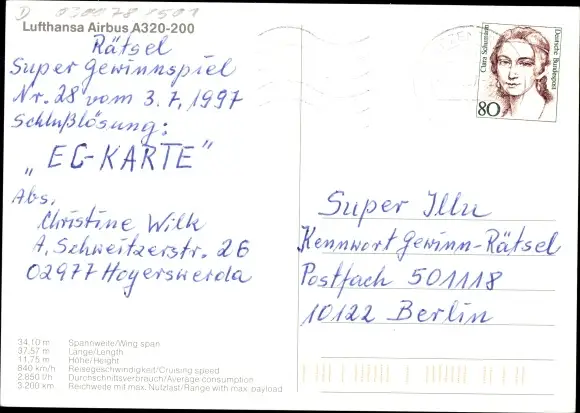 D 030478 1501
Lufthansa Airbus A320-200
Rätsel
Super Gewinnspiel
Nr. 28 vom 3.7.1997
Schlußlösung:
„EC-KARTE"
Abs.
Christine Wilk
A. Schweitzerstr. 26
02977 Hoyerswerda
Clara Schumann
Deutsche Bundespost
80
Super Illu
Kennwort Gewinn-Rätsel
Postfach 501118
10122 Berlin
34,10 m Spannweite/Wing span
37,57 m Länge/Length
11,75 m Höhe/Height
840 km/h Reisegeschwindigkeit/Cruising speed
2.850 l/h Durchschnittsverbrauch/Average consumption
3.200 km Reichweite mit max. Nutzlast/Range with max. payload